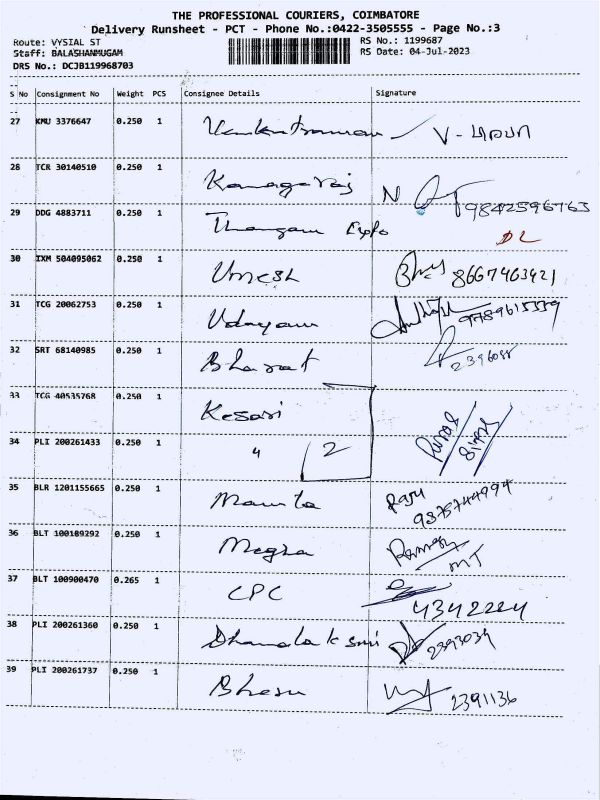 THE PROFESSIONAL COURIERS, COIMBATORE
Delivery Runsheet - PCT - Phone No.:0422-3505555 - Page No.:3
Route: VYSIAL ST RS No.: 1199687
Staff: BALASHANMUGAM RS Date: 04-Jul-2023
DRS No.: DCJB119968703
S No Consignment No Weight PCS Consignee Details Signature
27 KMU 3376647 0.250 1 Venkatraman V-
28 TCR 30140510 0.250 1 Kanagaraj N 9842596763
29 DDG 4883711 0.250 1 Thangam Expo DL
30 IXM 504095062 0.250 1 Umesh 8667463421
31 TCG 20062753 0.250 1 Udayam 9789615339
32 SRT 68140985 0.250 1 Bharat
33 TCG 40535768 0.250 1 Kesari
34 PLI 200261433 0.250 1 " 2
35 BLR 1201155665 0.250 1 Mamta Raju
9375744994
36 BLT 100109292 0.250 1 Megha Ramesh
MT
37 BLT 100900470 0.265 1 CPC
4342224
38 PLI 200261360 0.250 1 Dhanalaksmi 2393039
39 PLI 200261737 0.250 1 2391136